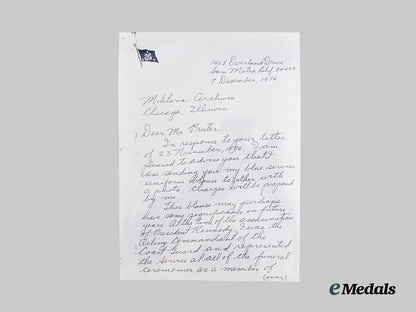 1418 Overland Drive
San Mateo Calif 94403
7 December, 1976
Militaria Archives
Chicago, Illinois
Dear Mr. Pruter:
In response to your letter
of 23 November, 1976, I am
pleased to advise you that I
am sending you my blue service
uniform blouse together with
a photo. Charges will be prepaid
by me
This blouse may perhaps
have some significance in future
years. At the time of the assassination
of President Kennedy, I was the
Acting Commandant of the
Coast Guard and represented
the service at all of the funeral
ceremonies as a member of
(over)
eMedals